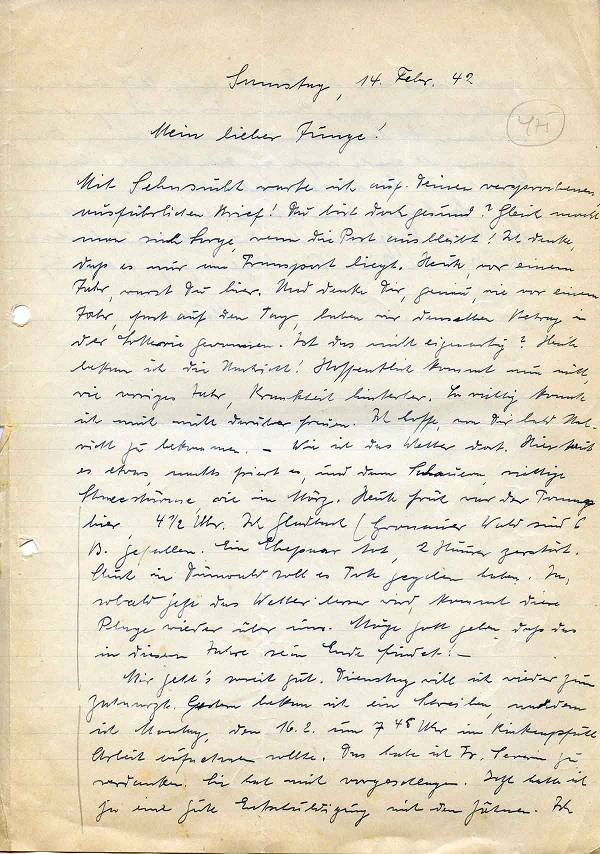 Samstag, 14. Febr. 42
Mein lieber Junge!
Mit Sehnsucht warte ich auf Deinen versprochenen
ausführlichen Brief! Du bist doch gesund? Gleich macht
man sich Sorge, wenn die Post ausbleibt! Ich denke,
daß es nur am Transport liegt. Heute, vor einem
Jahr, warst Du hier. Und denke Dir, genau, wie vor einem
Jahr, fast auf den Tag, haben wir denselben Betrag in
der Lotterie gewonnen. Ist das nicht eigenartig? Heute
bekam ich die Nachricht! Hoffentlich kommt nun nicht,
wie voriges Jahr, Krankheit hinterher. So richtig konnte
ich mich nicht darüber freuen. Ich hoffe, von Dir bald Nach-
richt zu bekommen. – Wie ist das Wetter dort. Hier
es etwas, nachts friert es, und dann Schauern, richtige
Schneestürme, wie im März. Heute früh war der Tommy
hier, 4 1/2 Uhr. In Gladbach (Gronauer Wald sind 6
B. gefallen. Ein Ehepaar tot, 2 Häuser zerstört.
Auch in Dünnwald soll es Tote gegeben haben. Ja,
sobald jetzt das Wetter besser wird, kommt diese
Plage wieder über uns. Möge Gott geben, daß das
in diesem Jahre sein Ende findet! –
Mir geht's soweit gut. Dienstag will ich wieder zum
Zahnarzt. Gestern bekam ich ein Schreiben, nachdem
ich Montag, den 16.2. um 7 45 Uhr im
Arbeit aufnehmen sollte. Das habe ich Fr. zu
verdanken. Sie hat mich vorgeschlagen. Jetzt hatte ich
ja eine gute Entschuldigung mit den Zähnen. Ich